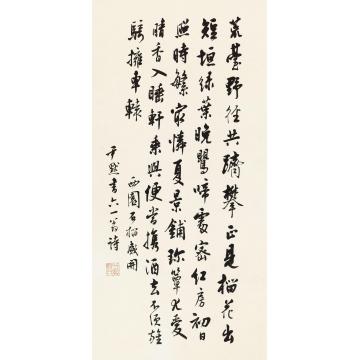 荒臺野徑共躋攀正是榴花出
短垣綠葉晚鶯啼處密紅房初日
照時繁最憐夏景鋪珍簟尤愛
晴香入睡軒乘興便當攜酒去不須旌
騎擁車轅
西園石榴盛開
尹默書六一翁詩